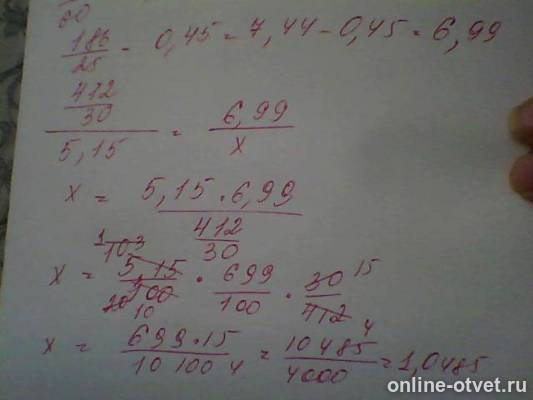 60
186/25 - 0,45 = 7,44 - 0,45 = 6,99
(412/30)/5,15 = 6,99/x
x = (5,15 · 6,99)/(412/30)
1 103
x = 5,15/100 · 699/100 · 30/412 15
20 10 4
x = (699 · 15)/(10 100 4) = 10485/4000 = 1,0485
online-otvet.ru